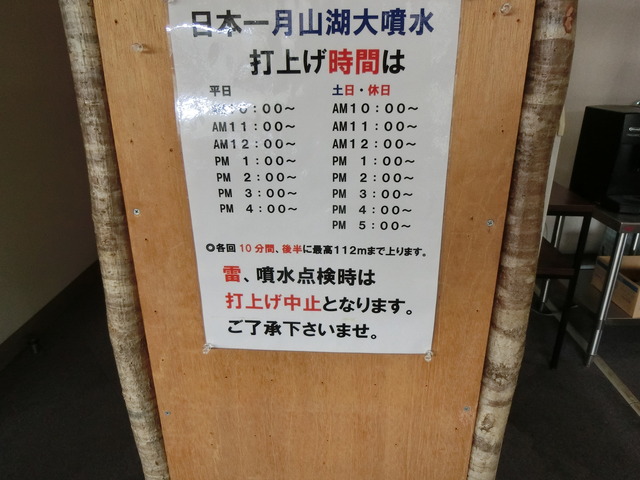 日本一月山湖大噴水
打上げ時間は
平日
AM10:00～
AM11:00～
AM12:00～
PM 1:00～
PM 2:00～
PM 3:00～
PM 4:00～
土日・休日
AM10:00～
AM11:00～
AM12:00～
PM 1:00～
PM 2:00～
PM 3:00～
PM 4:00～
PM 5:00～
◎各回10分間、後半に最高112mまで上ります。
雷、噴水点検時は
打上げ中止となります。
ご了承下さいませ。